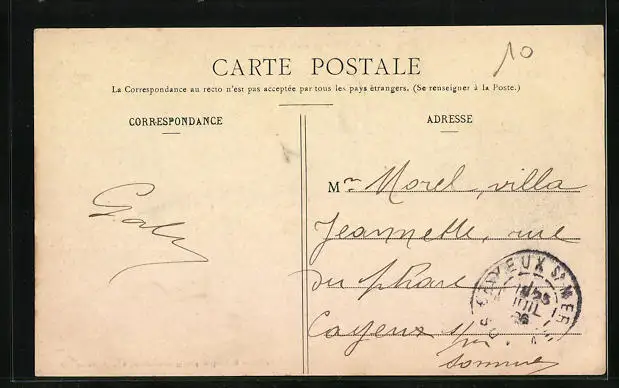 10
CARTE POSTALE
La Correspondance au recto n'est pas acceptée par tous les pays étrangers. (Se renseigner à la Poste.)
CORRESPONDANCE
ADRESSE
Mr Morel, villa
Jeannette, rue
du phare
Cayeux s/
Somme
CAYEUX S. MER
JUIL